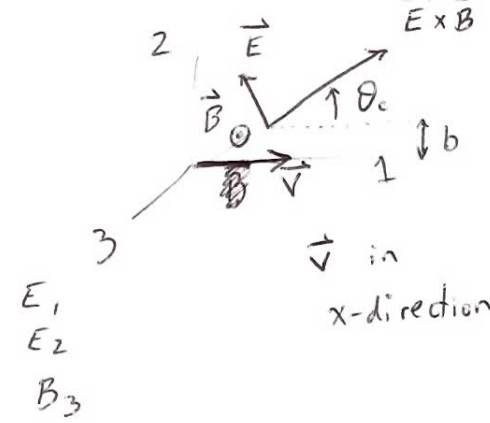 E × B
2
E⃗
θc
B⃗
b
1
V⃗
3
V⃗ in
x-direction
E₁
E₂
B₃